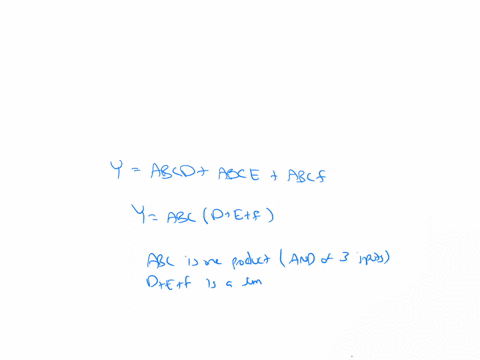 Y = ABCD + ABCE + ABCf
Y = ABC (D+E+f)
ABC is one product (AND of 3 inputs)
D+E+f is a sum